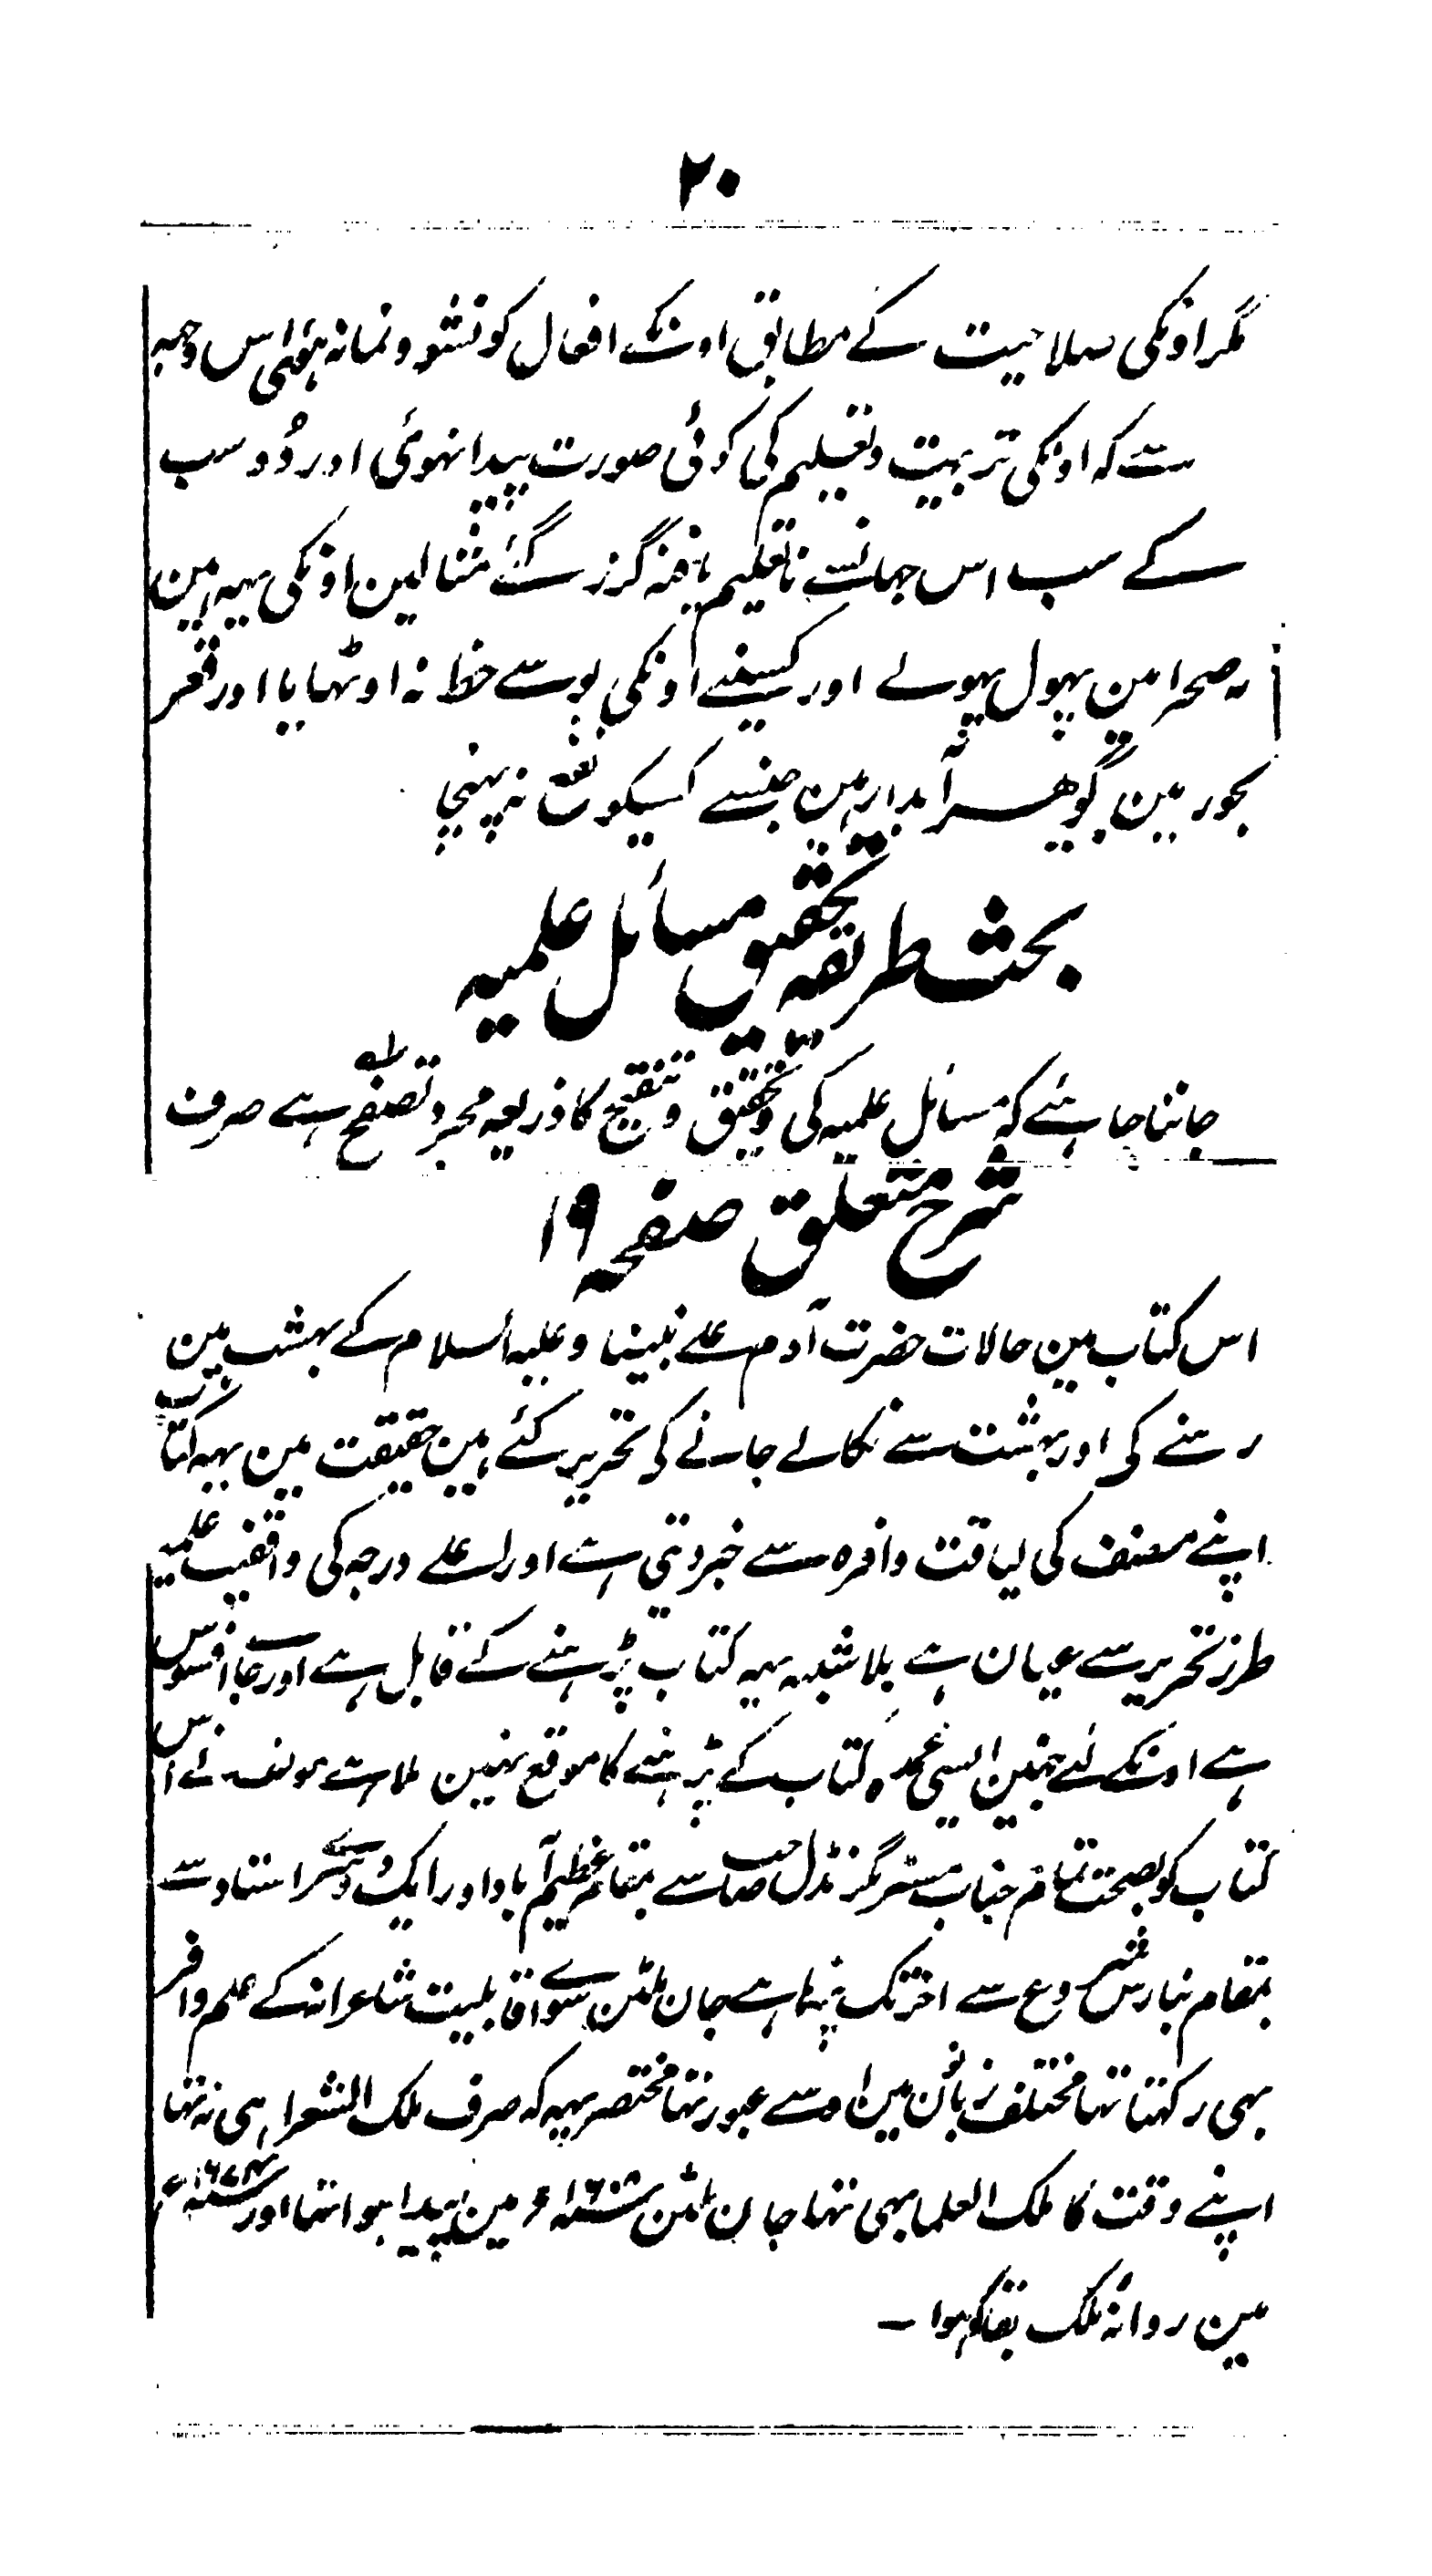 ۲۰
مگر اونکی صلاحیت کے مطابق اونکے افعال کو نشو و نما نہ ہوئی اس وجہہ
سے کہ اونکی تربیت و تعلیم کی کوئی صورت پیدا نہوئی اور وُہ سب
کے سب اس جہانسے ناتعلیم یافتہ گزر گئے مثالین اونکی یہہ ہین
کہ صحرا مین پہول پہولے اور کسینے اونکی بو سے حظ نہ اوٹہایا اور قعر
بحور مین گوہر آبدار ہین جنسے کسیکو نفع نہ پہنچی
بحث طریقہ تحقیق مسائل علمیہ
جاننا چاہئے کہ مسائل علمیہ کی تحقیق و تنقیح کا ذریعہ مجرد تصفح ہے صرف
شرح متعلق صفحہ ۱۹
اس کتاب مین حالات حضرت آدم علے نبینا و علیہ السلام کے بہشت مین
رہنے کی اور بہشت سے نکالے جانے کی تحریر کئے ہین حقیقت مین یہہ کتاب
اپنے مصنف کی لیاقت وافرہ سے خبر دیتی ہے اور اعلے درجہ کی واقفیت علمیہ
طرز تحریر سے عیان ہے بلا شبہہ یہہ کتاب پڑہنے کے قابل ہے اور جاے افسوس
ہے اونکے لئے جنہین ایسی عمدہ کتاب کے پڑہنے کا موقع نہین ملا ہے مولف نے اس
کتاب کو بصحت تمام جناب مسٹر مگنزڈل صاحب سے بمقام عظیم آباد اور ایک دوسرے استاد سے
بمقام بنارس شروع سے آخر تک پڑہا ہے جان ملٹن سواے قابلیت شاعرانہ کے علم وافر
بہی رکہتا تہا مختلف زبانون مین اوسے عبور تہا مختصر یہہ کہ صرف ملک الشعرا ہی نہ تہا
اپنے وقت کا ملک العلما بہی تہا جان ملٹن سنہ ۱۶۰۸ء مین پیدا ہوا تہا اور سنہ ۱۶۷۴ء
مین روانۂ ملک بقا ہوا ۔